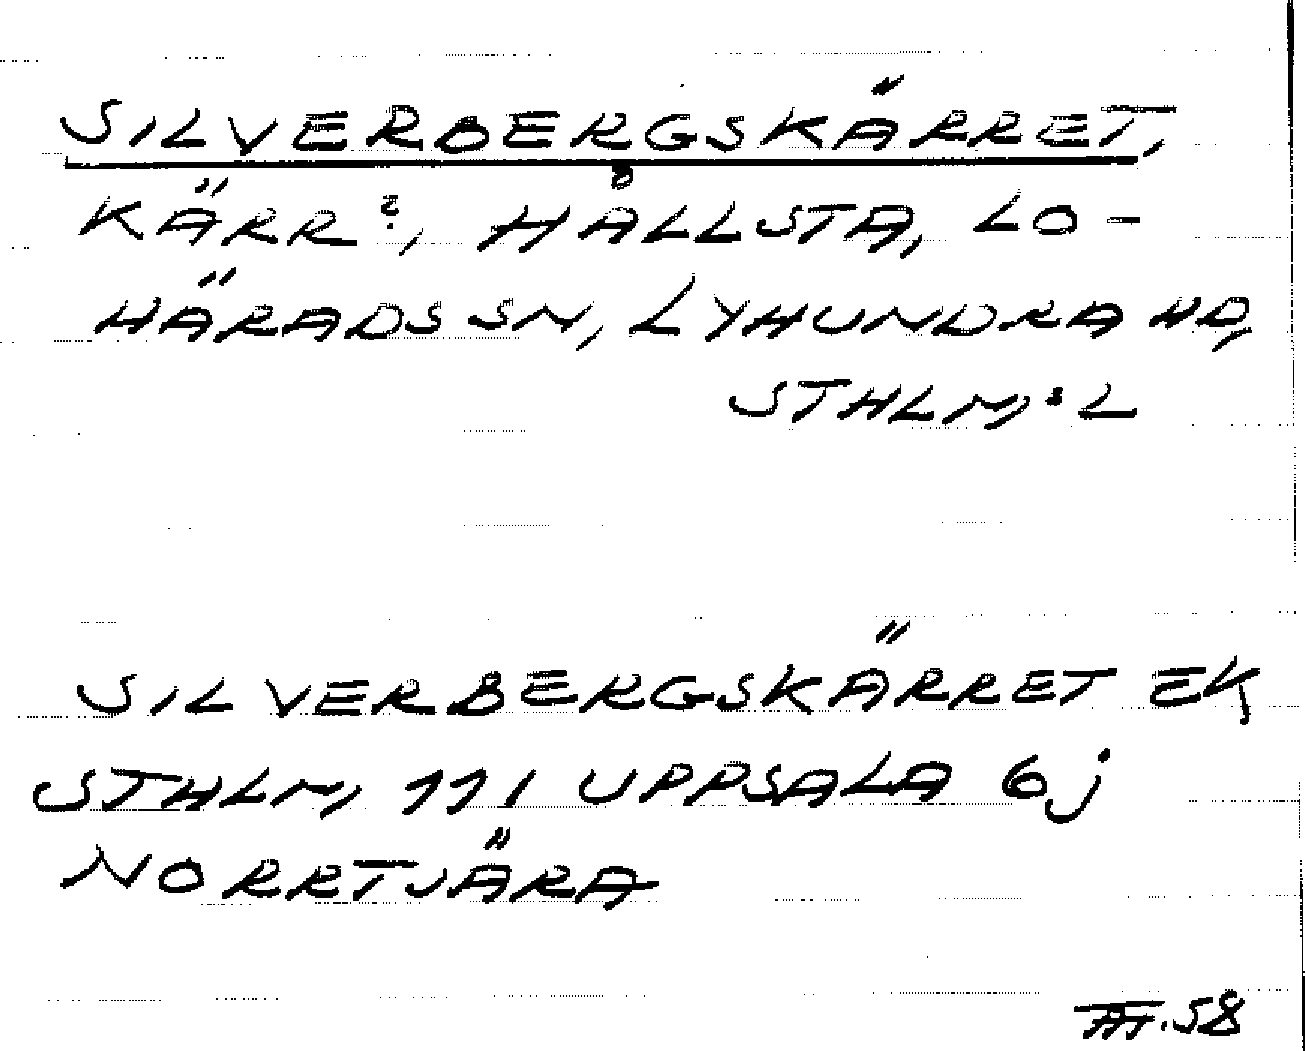 SILVERBERGSKÄRRET,
KÄRR?, HÅLLSTA, LO-
HÄRADS SN, LYHUNDRA HD,
STHLM:L
SILVERBERGSKÄRRET EK
STHLM, 111 UPPSALA 6j
NORRTJÄRA
.58